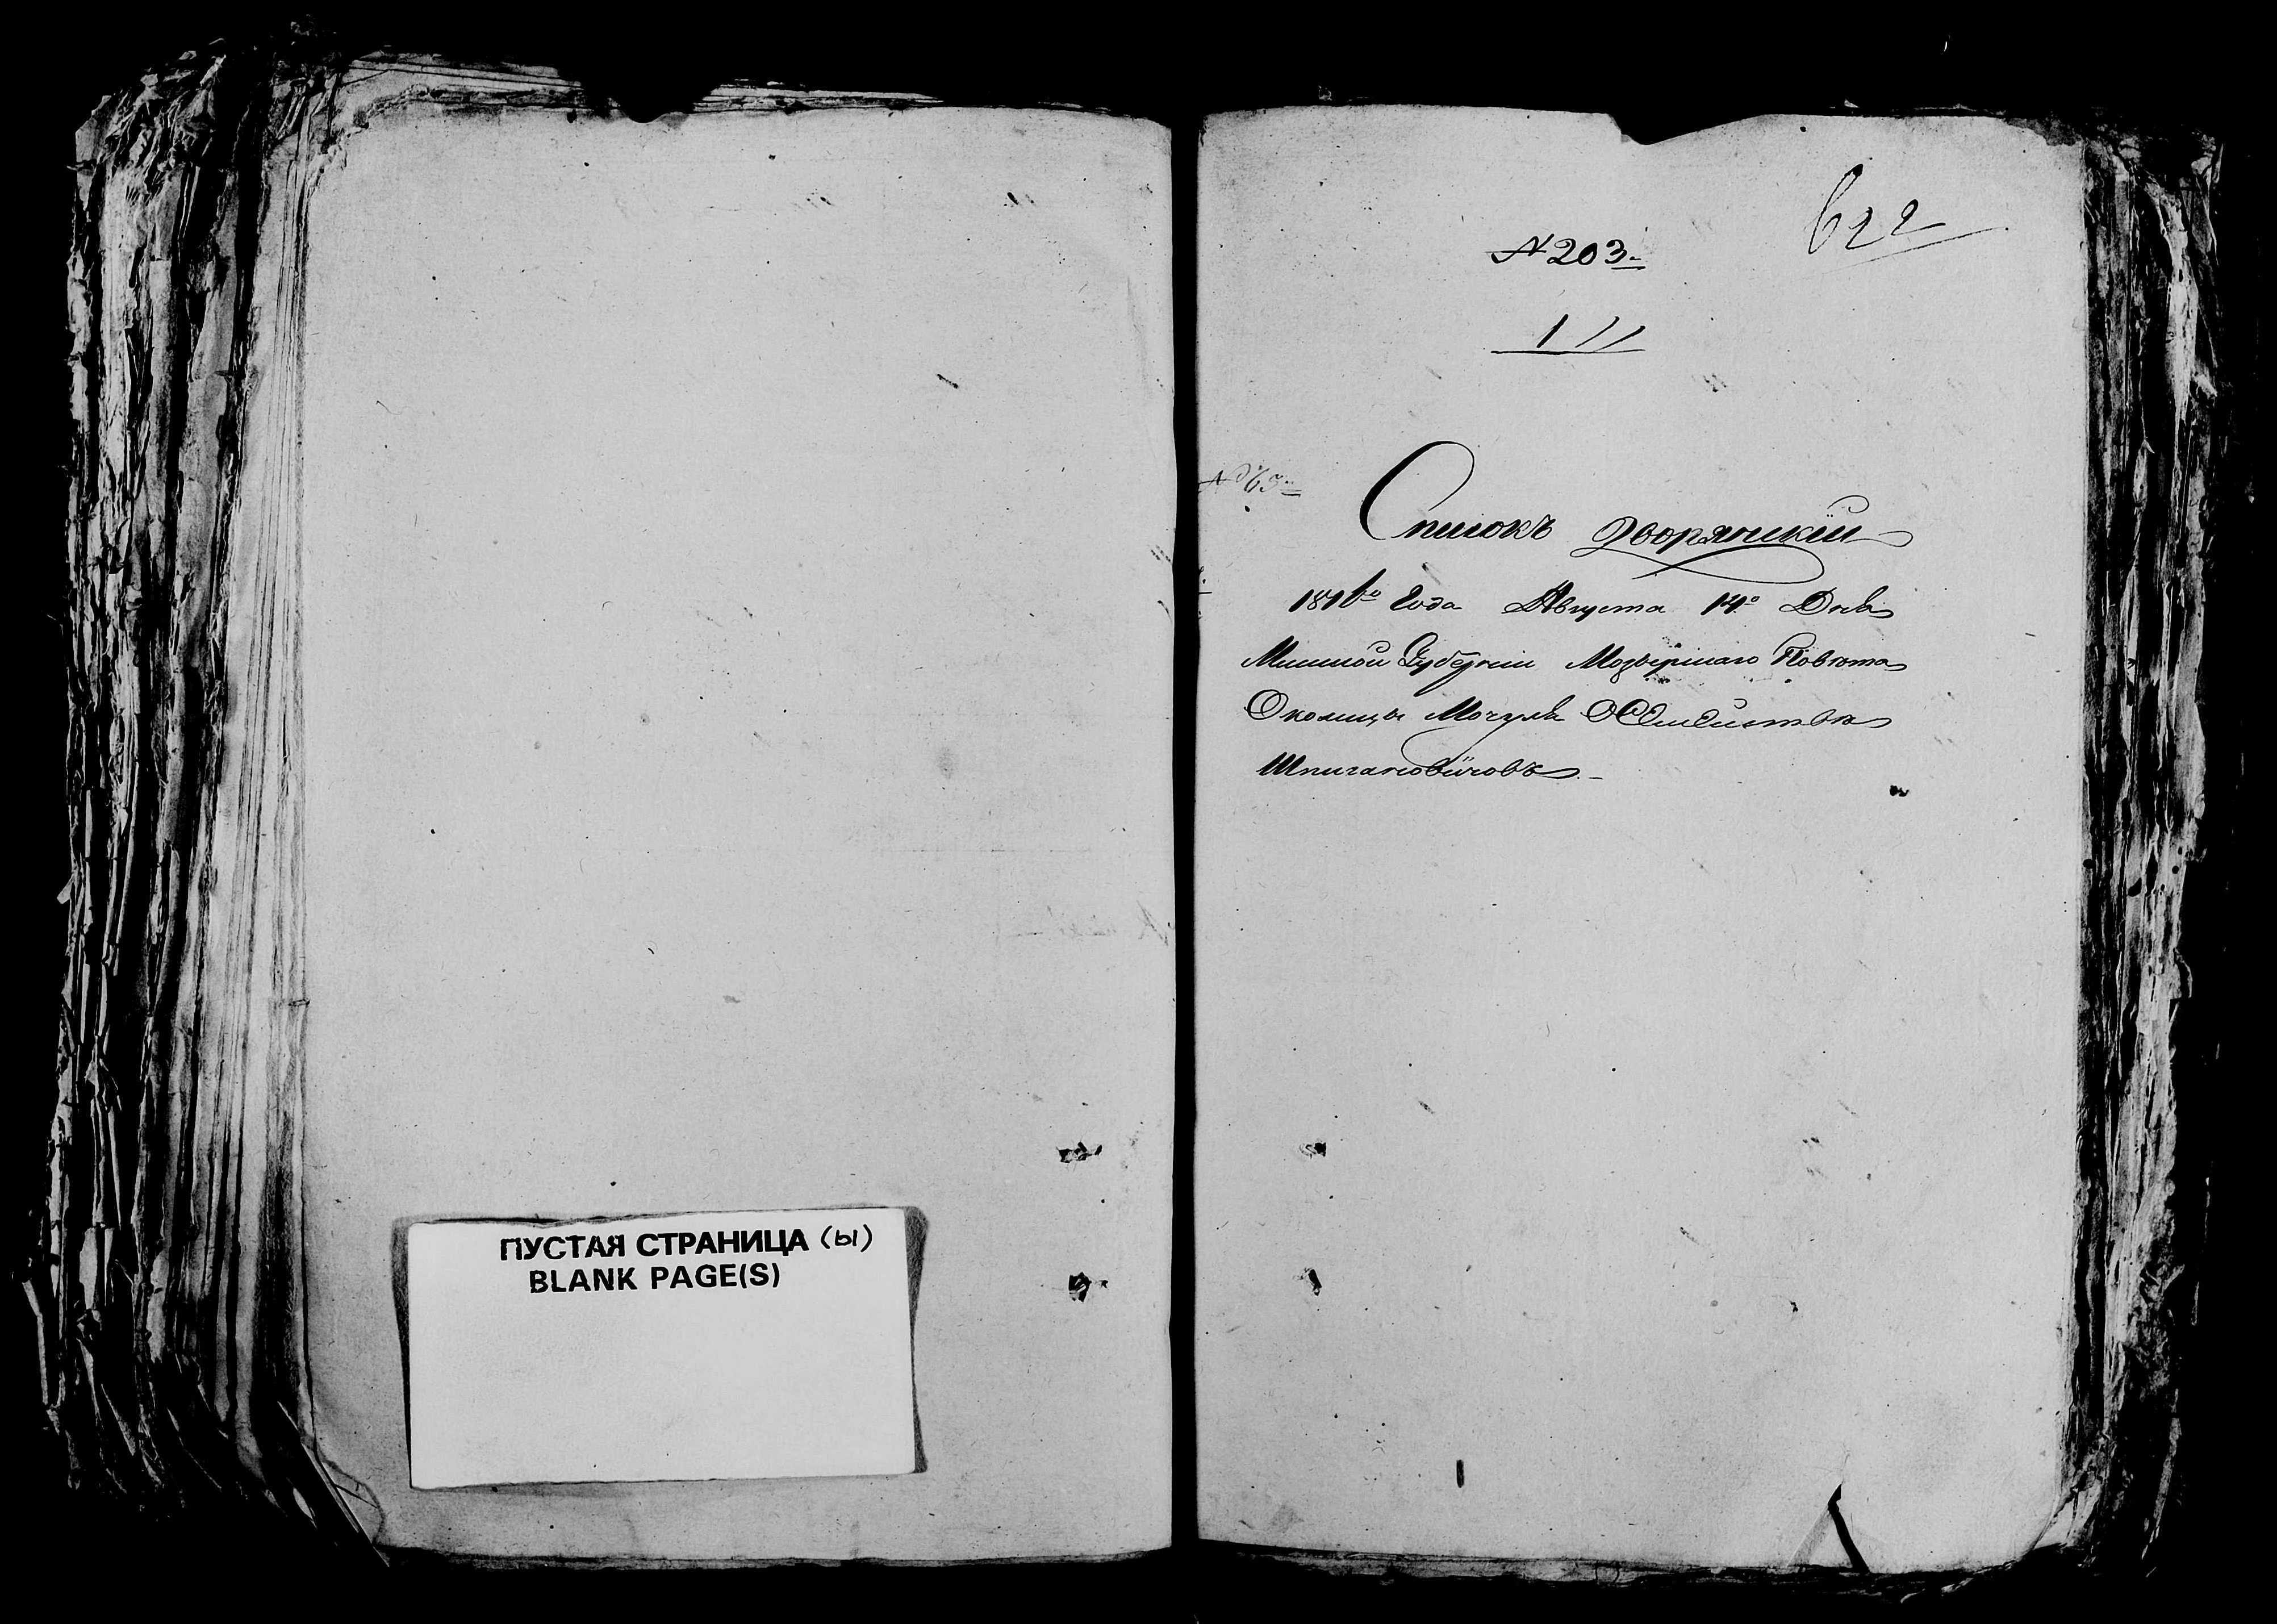 ПУСТАЯ СТРАНИЦА (ы)
BLANK PAGE(S)
622
№ 203
111
№ 63
Списокъ Дворянскій
1816го Года Августа 14го Дня
Минской Губерніи Мозырскаго Повѣта
Околицы Мочуль
Шпигановичовъ